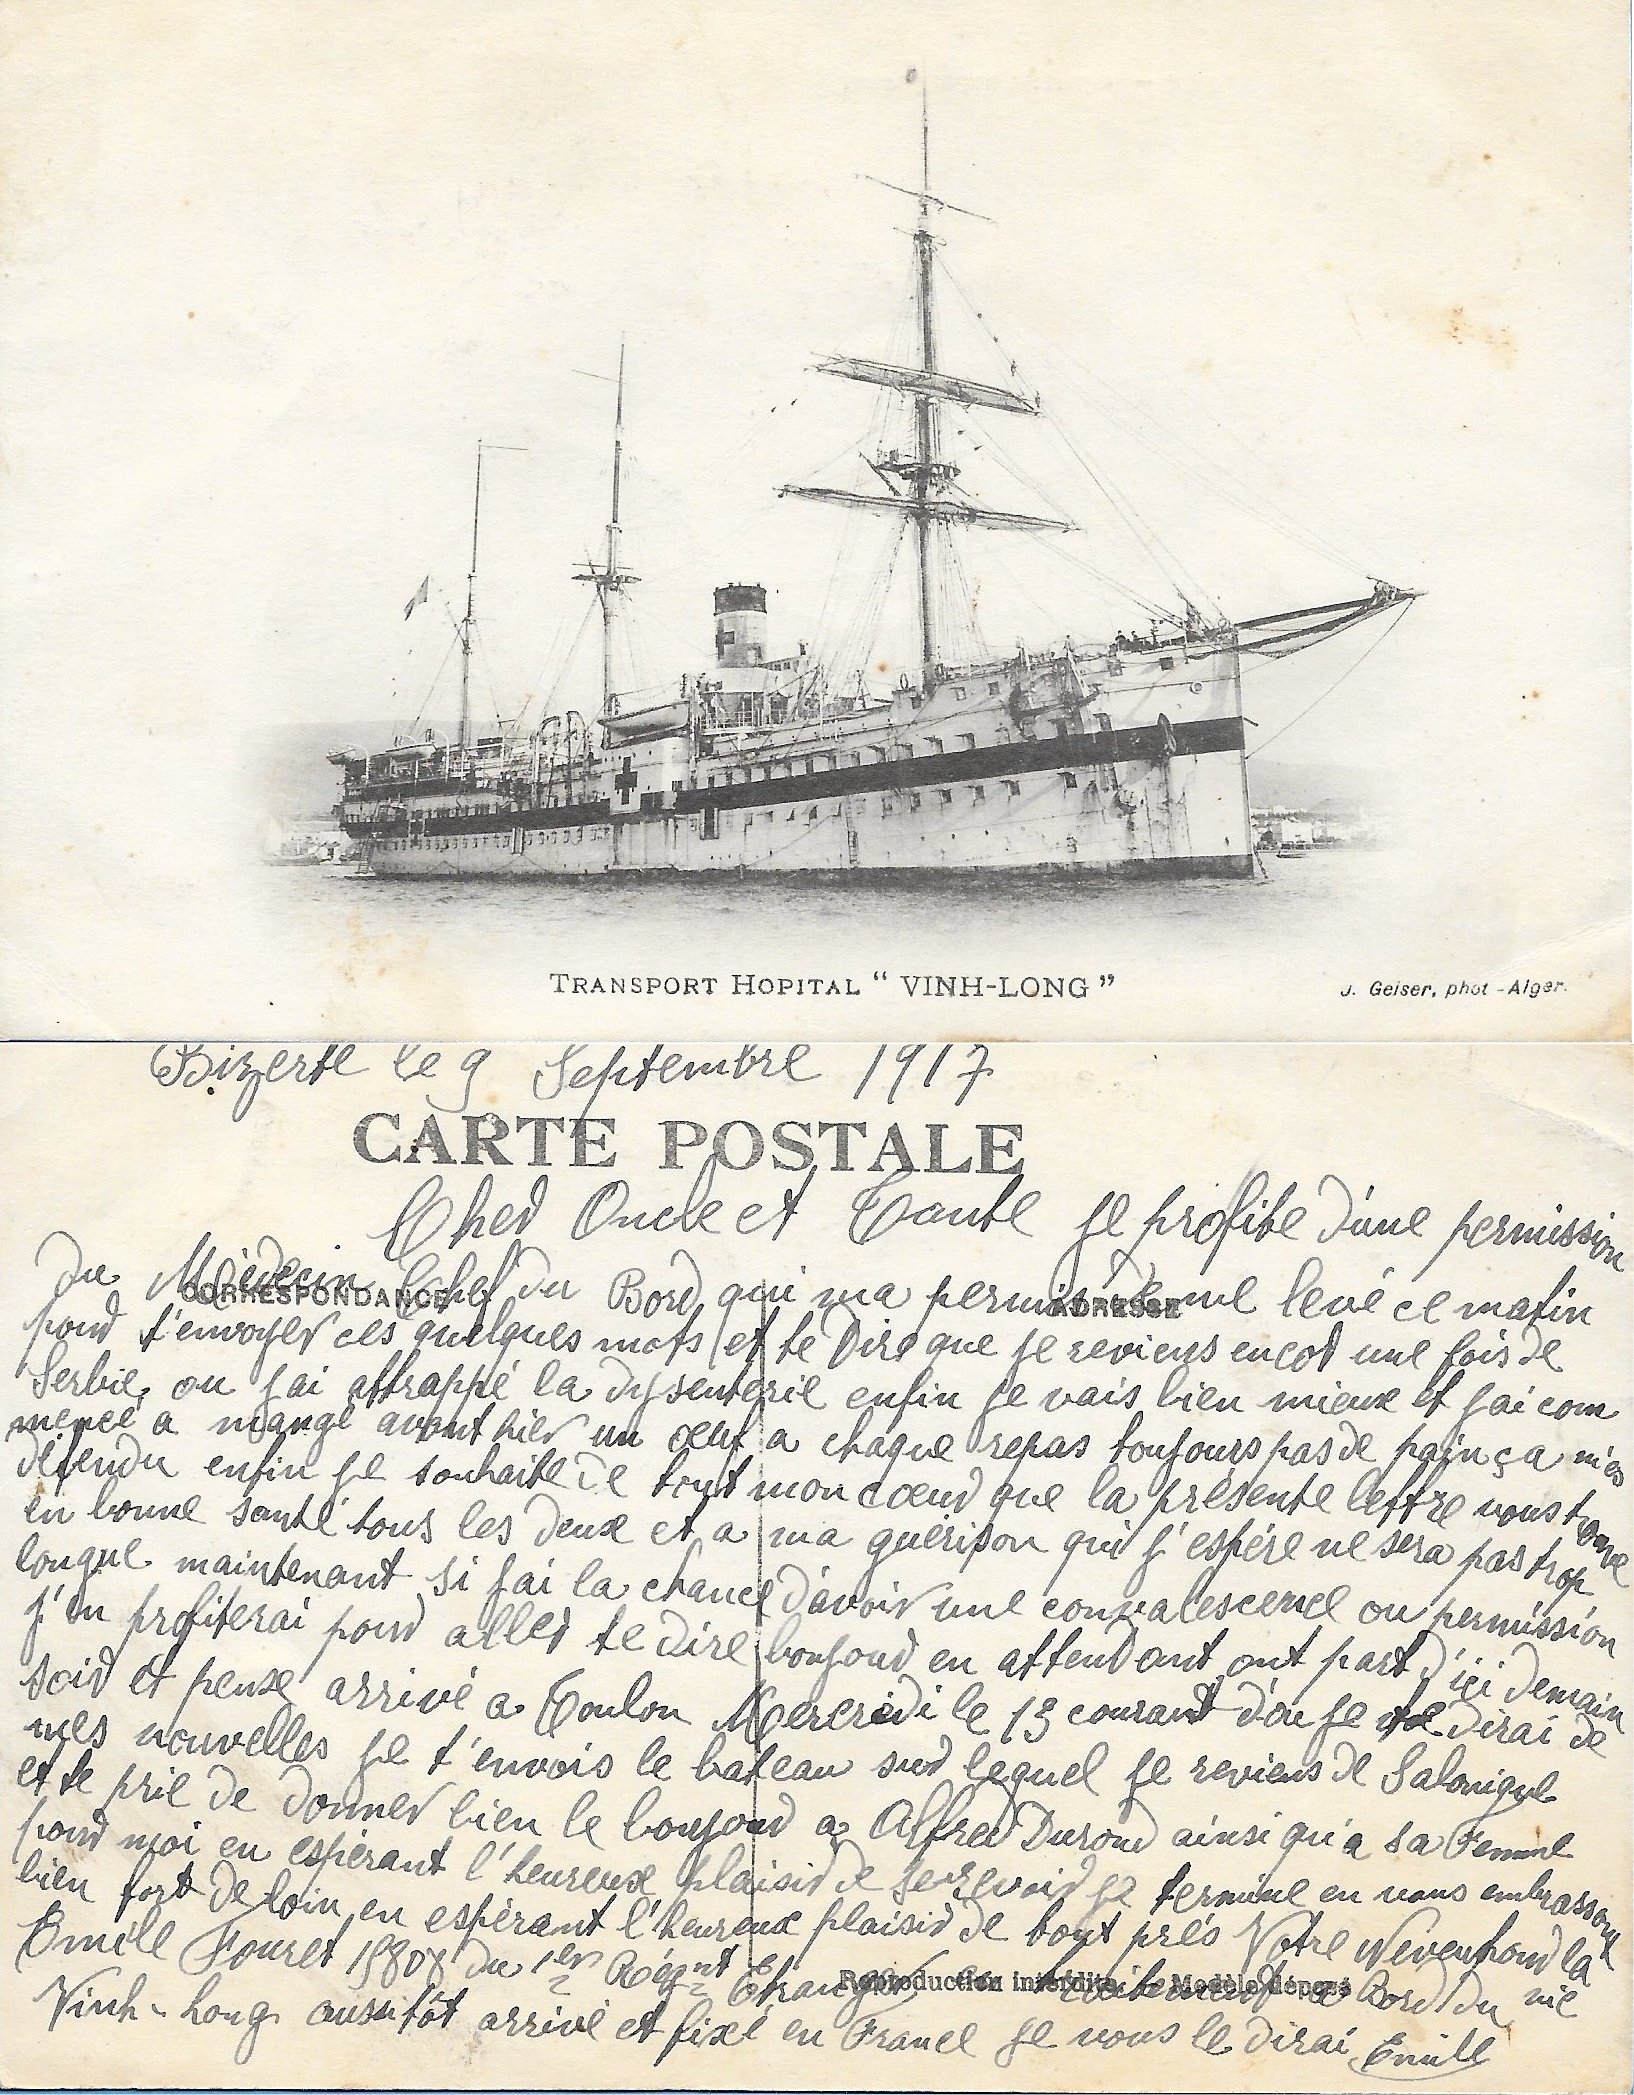 TRANSPORT HOPITAL “ VINH-LONG ”
J. Geiser, phot - Alger.
Bizerte le 9 Septembre 1917
CARTE POSTALE
CORRESPONDANCE
ADRESSE
Cher Oncle et Tante je profite d'une permission
du Médecin Chef du Bord qui ma permis de me levé ce matin
pour t'envoyer ces quelques mots et te Dire que je reviens encor une fois de
Serbie, ou j'ai attrappé la dysenterie enfin je vais bien mieux et j'ai com
mencé a mangé avant hier un œuf a chaque repas toujours pas de pain ça m'es
défendu enfin je souhaite de tout mon cœur que la présente lettre vous trouve
en bonne santé tous les deux et a ma guérison qui j'espére ne sera pas trop
longue maintenant si j'ai la chance d'avoir une convalescence ou permission
j'en profiterai pour aller te dire bonjour en attendant ont part d'ici demain
soir et pense arrivé a Toulon Mercredi le 13 courant d'ou je te dirai de
mes nouvelles je t'envois le bateau sur lequel je reviens de Salonique
et te prie de donner bien le bonjour a Alfred Durond ainsi qu'a sa Femme
pour moi en espérant l'heureux plaisir de je terminE en vous embrassant
bien fort de loin en espérant l'heureux plaisir de tout près Votre Neveu
Emile Fouret du 1er Régnt Etranger a Bord du
Vinh-Long aussitôt arrivé et fixé en France je vous le dirai Emile
Reproduction interdite Modèle déposé